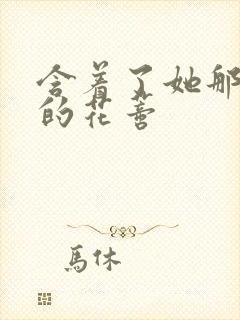 含着了她那
的花蕾
馬休